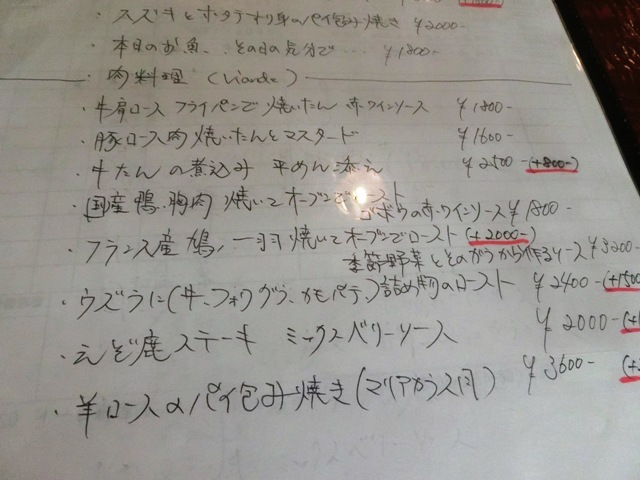 ・スズキとホタテすり身のパイ包み焼き ¥2000-
・本日のお魚、その日の気分で… ¥1800-
・肉料理 (Viande)
・牛肩ロース フライパンで焼いたん 赤ワインソース ¥1800-
・豚ロース肉 焼いたんとマスタード ¥1600-
・牛たんの煮込み 平めん添え ¥2500- (+800-)
・国産鴨胸肉 焼いてオーブンでロースト
ゴボウの赤ワインソース ¥1800-
・フランス産鳩、一羽焼いてオーブンでロースト (+2000-)
季節野菜とそのがらから作るソース ¥3200-
・ウズラに(牛、フォワグラ、かもパテ)詰め物のロースト ¥2400-
・えぞ鹿ステーキ ミックスベリーソース ¥2000-
・羊ロースのパイ包み焼き(マリアカラス風) ¥3600-